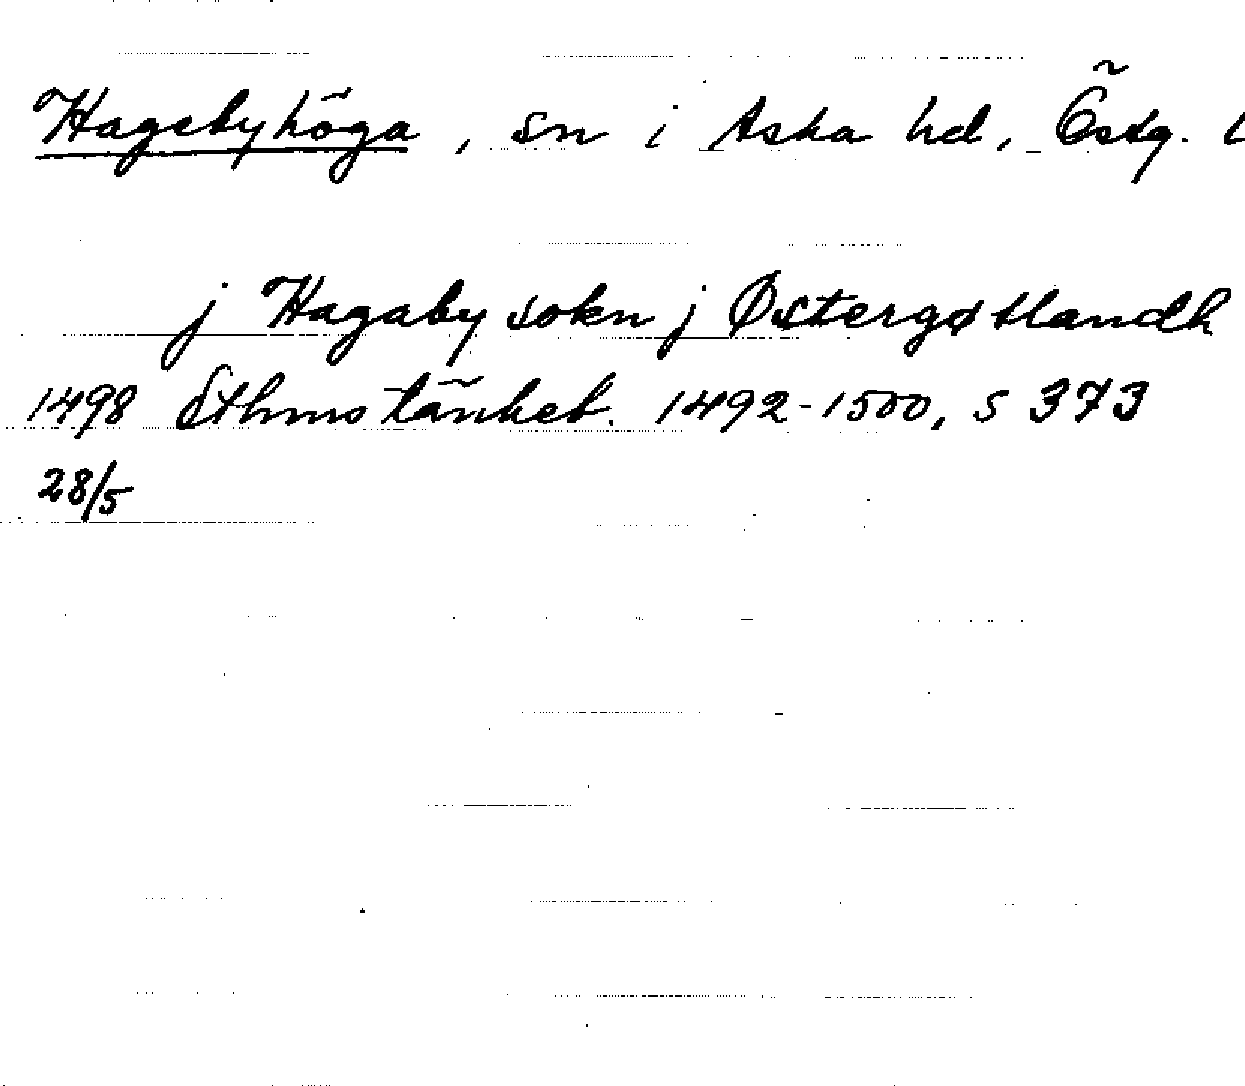 Hagebyhöga, sn i Aska hd, Östg. l
j Hagaby sokn j Østergøtlandh
1498 Sthms tänkeb. 1492-1500, s 373
28/5